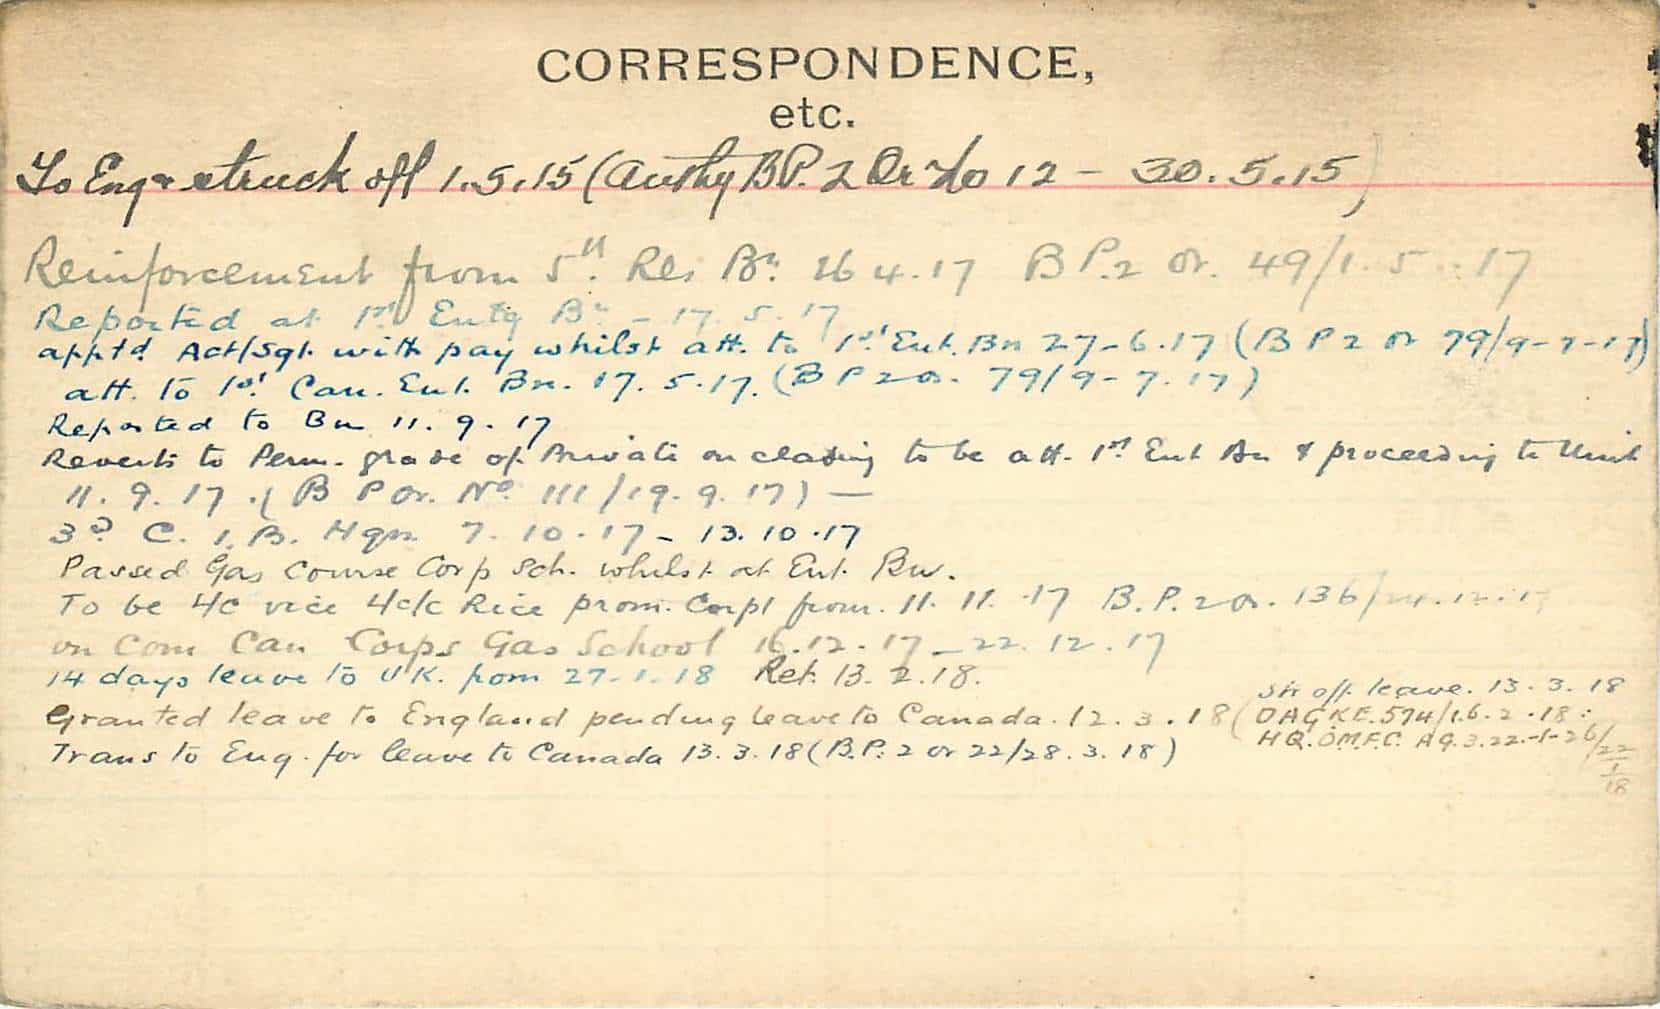 CORRESPONDENCE,
etc.
To Eng & struck off 1.5.15 (Authy B P. 2 Or No 12 - 30.5.15)
Reinforcement from 5th Res Bn. 26 4.17 B P.2 Or. 49/1.5.17
Reported at 1st Entg Bn - 17.5.17
apptd Act/Sgt. with pay whilst att. to 1st Ent. Bn 27-6.17 (B P 2 Or 79/9-7-17)
att. to 1st Can. Ent. Bn. 17.5.17. (B P 2 Or. 79/9-7.17)
Reported to Bn 11.9.17
Reverts to Perm. grade of Private on ceasing to be att. 1st Ent Bn & proceeding to Unit
11.9.17.(B P Or. No 111/19.9.17) —
3d C.I.B. Hqrs 7.10.17 - 13.10.17
Passed Gas Course Corp Sch. whilst at Ent. Bn.
To be 4c vice 4c/c Rice prom. Corpl from. 11.11.17 B.P.2 Or. 136/24.12.17
on Com Can Corps Gas School 16.12.17 - 22.12.17
14 days leave to U.K. from 27.1.18 Ret. 13.2.18.
Granted leave to England pending leave to Canada. 12.3.18 (DAG K.E. 574/1.6.2.18:
Str off leave. 13.3.18
HQ. OMFC. AG.3.22-1-26/22/1/18
Trans to Eng. for leave to Canada 13.3.18 (B.P.2 or 22/28.3.18)